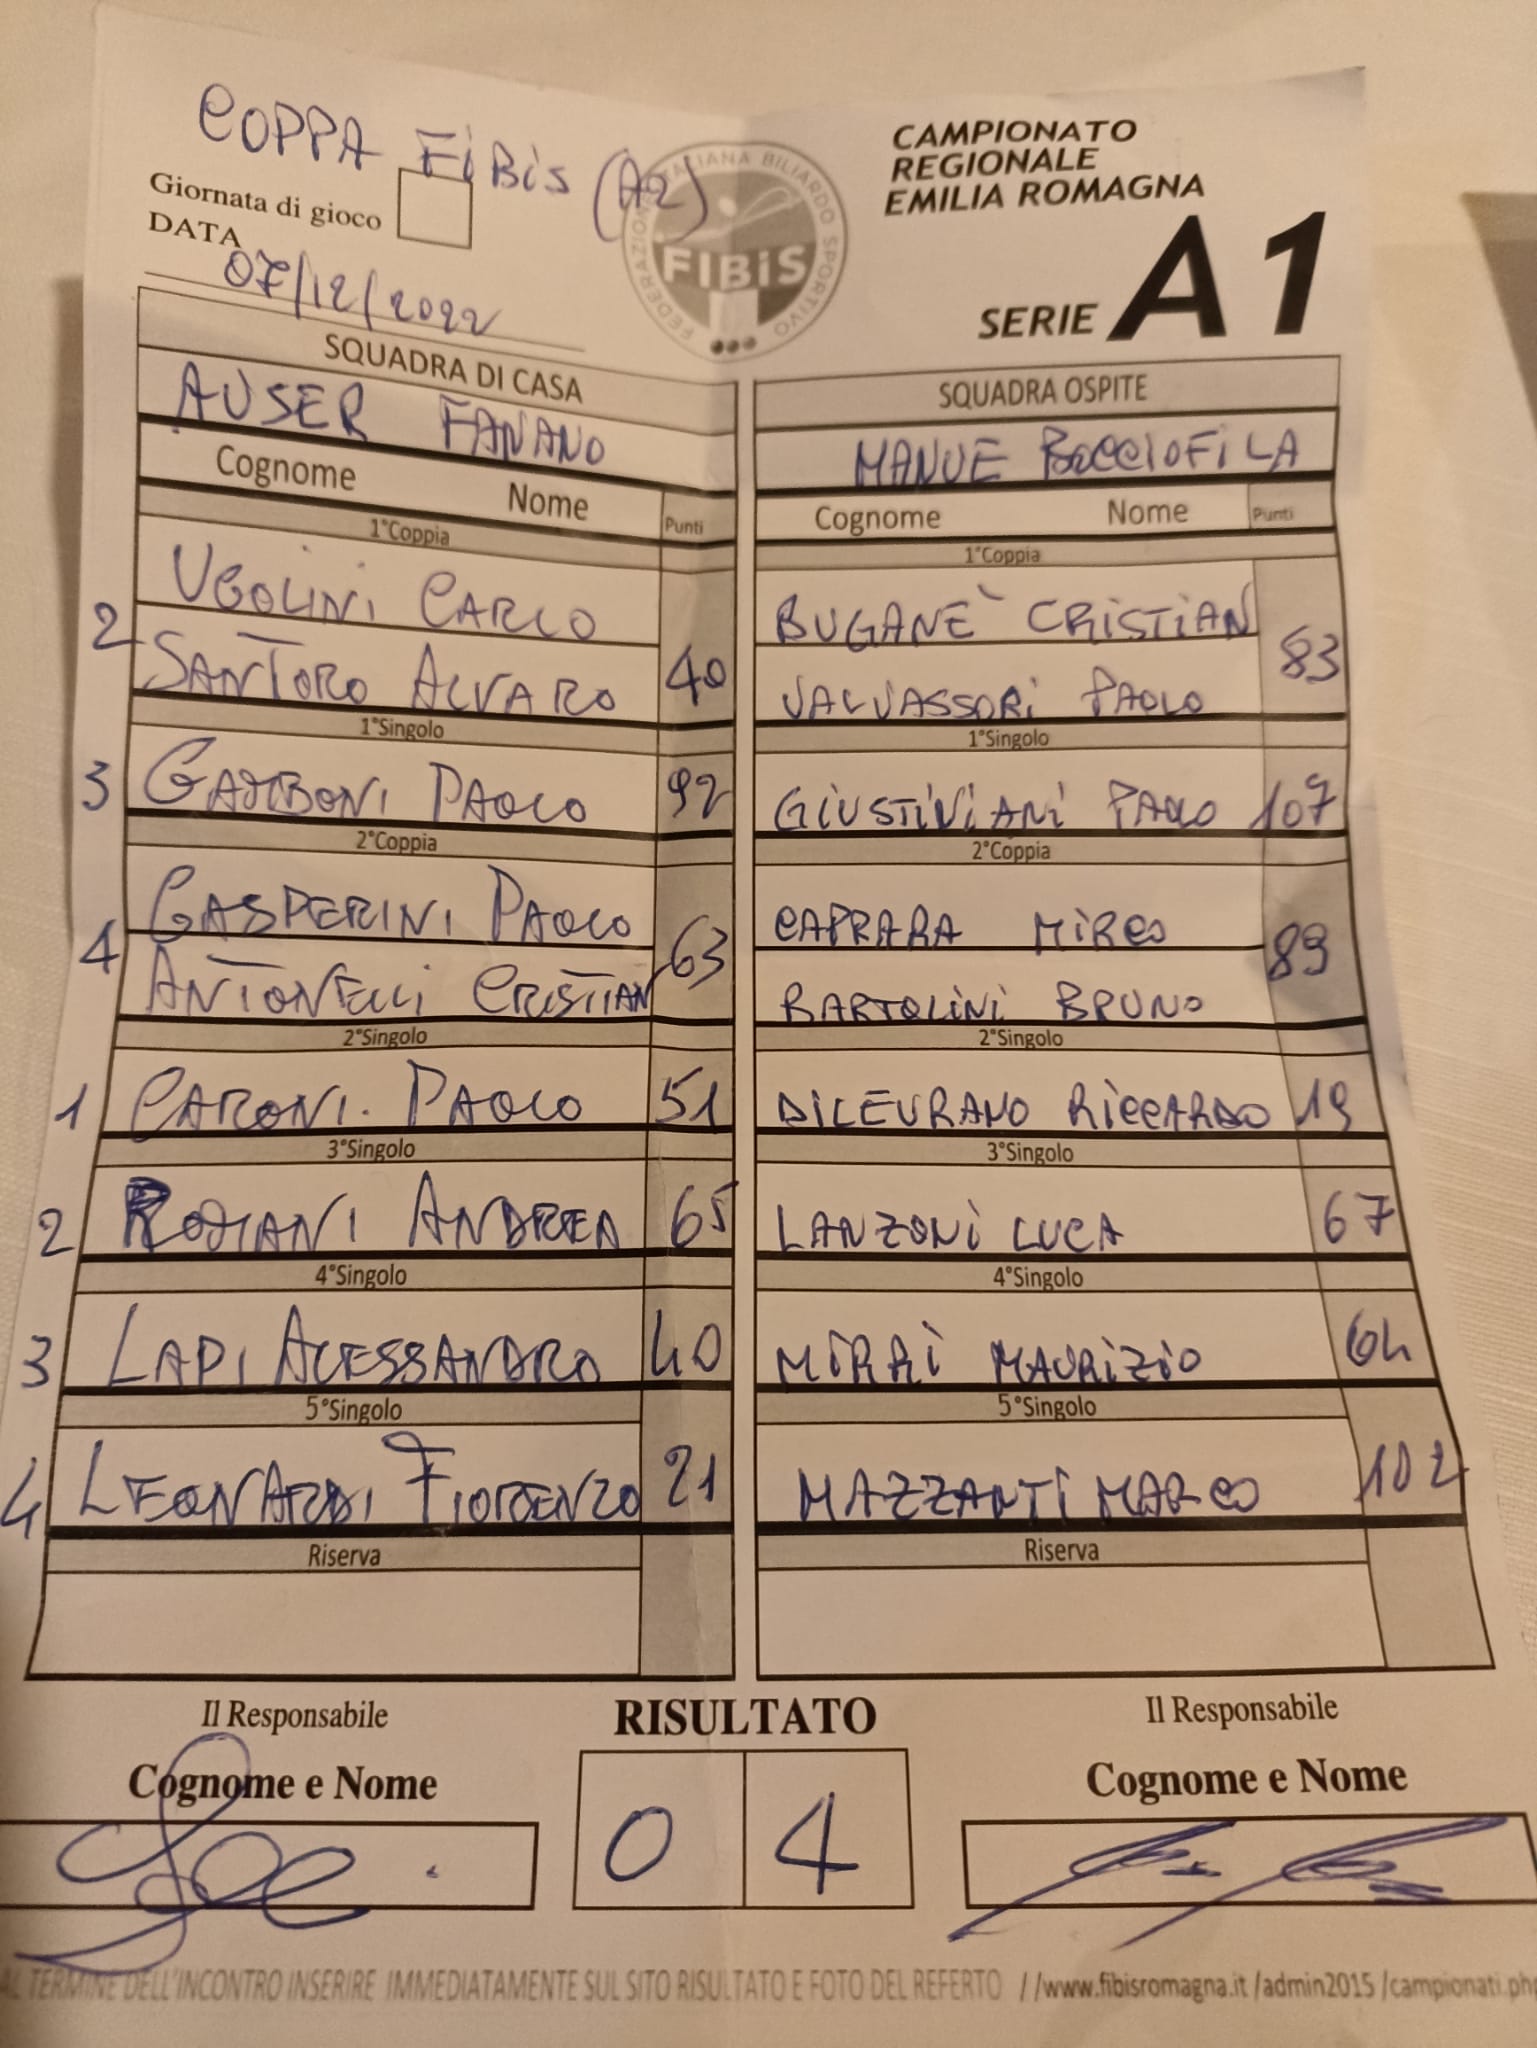 COPPA FiBiS (A2)
Giornata di gioco
DATA
07/12/2022
FEDERAZIONE ITALIANA BILIARDO SPORTIVO
FIBiS
CAMPIONATO
REGIONALE
EMILIA ROMAGNA
SERIE A1
SQUADRA DI CASA
AUSER FANANO
Cognome Nome Punti
1°Coppia
2 UGOLINI CARLO
SANTORO ALVARO 40
1°Singolo
3 GAMBONI PAOLO 92
2°Coppia
4 GASPERINI PAOLO
ANTONELLI CRISTIAN 63
2°Singolo
1 CARONI PAOLO 51
3°Singolo
2 ROMANI ANDREA 65
4°Singolo
3 LAPI ALESSANDRO 40
5°Singolo
4 LEONARDI FIORENZO 21
Riserva
SQUADRA OSPITE
BOCCIOFiLA
Cognome Nome Punti
1°Coppia
BUGANE` CRiSTiAN
VALVASSORi PAOLO 83
1°Singolo
GiUSTiNiANi PAOLO 107
2°Coppia
CAPRARA MiRCO
BARTOLiNi BRUNO 89
2°Singolo
RiCCARDO 19
3°Singolo
LANZONi LUCA 67
4°Singolo
MiRRi MAURiZiO 64
5°Singolo
MAZZANTi MARCO 102
Riserva
Il Responsabile
Cognome e Nome
RISULTATO
0 4
Il Responsabile
Cognome e Nome
AL TERMINE DELL'INCONTRO INSERIRE IMMEDIATAMENTE SUL SITO RISULTATO E FOTO DEL REFERTO //www.fibisromagna.it /admin2015 /campionati.php